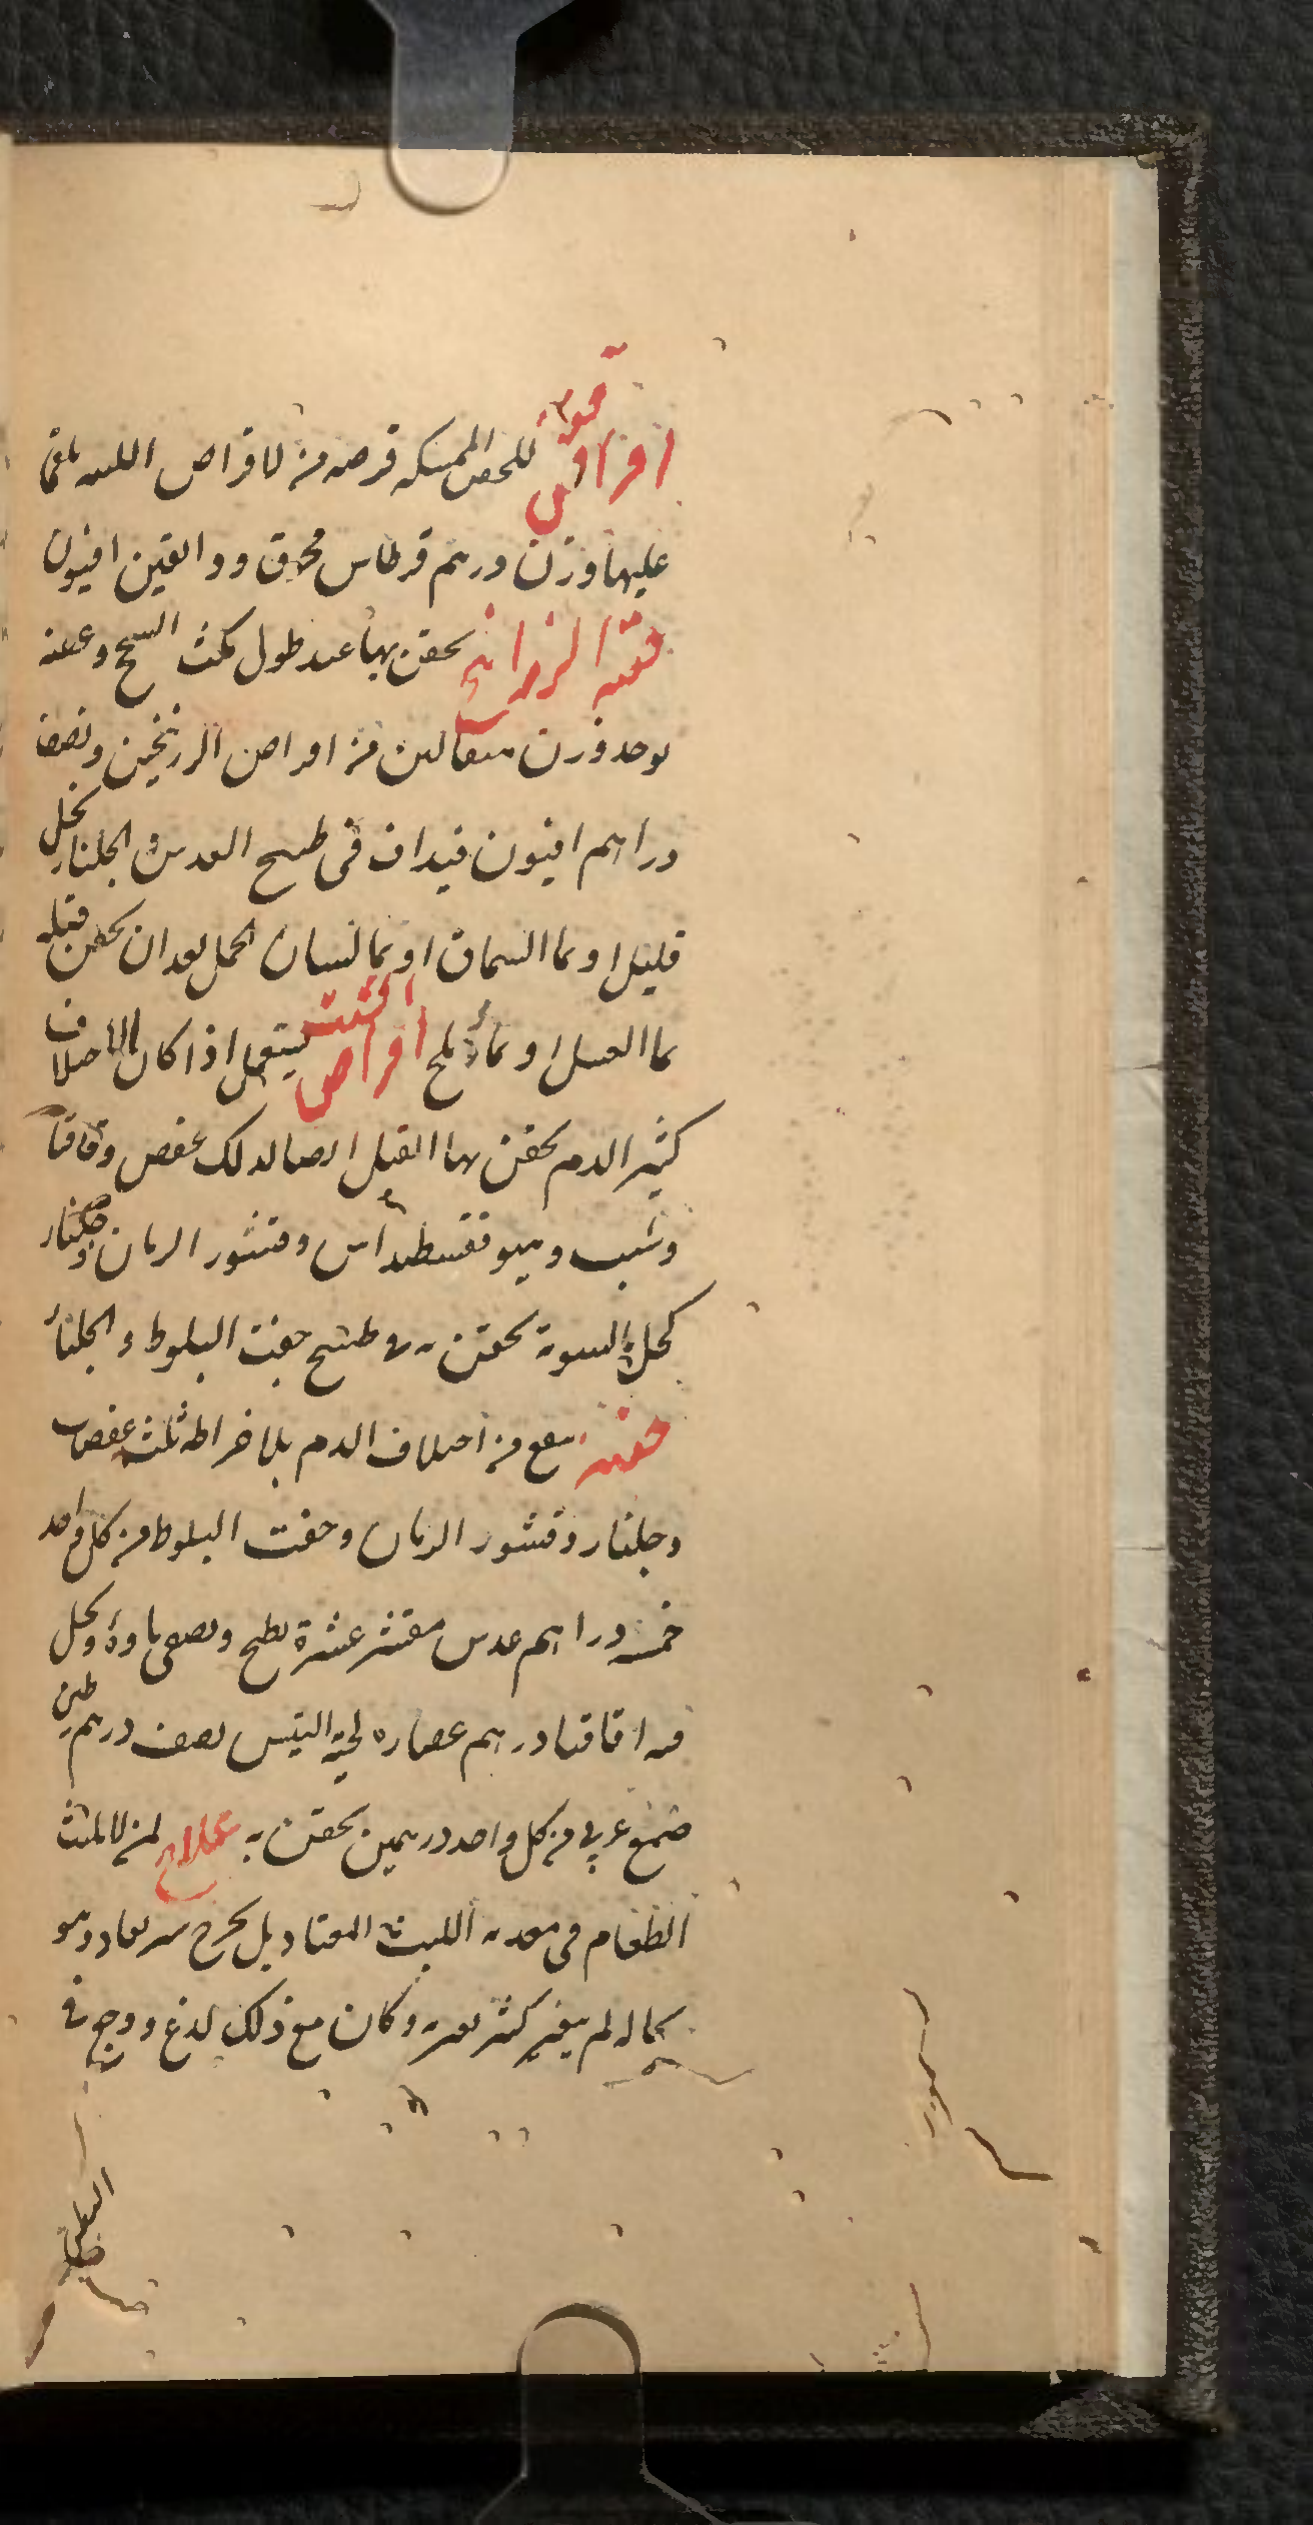 اقراص قوية للحقن الممسكه قرصه من الاقراص اللينه يلقى
عليها وزن درهم قرطاس محرق ودانقين افيون
حقنه الزرانيخ يحقن بها عند طول مكث السحج وعفنه
يوخذ وزن مثقالين من اقراص الزرنيخين ونصف
دراهم افيون فيداف فى طبيخ العدس الجلنار بخل
قليل او بما السماق او بما لسان الحمل بعد ان يحقن قبله
بما العسل او بماء ملح اقراص الشب يستعمل اذا كان الاختلاف
كثير الدم يحقن بها القبل ايضا لذلك عفص وقاقيا
وشب وهيوفقسطيداس وقشور الرمان وجلنار
كحل بالسوية يحقن به فى طبيخ جفت البلوط والجلنار
حقنه ينفع من اختلاف الدم بلا خراطه ثلث عفصات
وجلنار وقشور الرمان وجفت البلوط من كل واحد
خمسه دراهم عدس مقشر عشرة يطبخ ويصفى ماوه ويحل
فيه اقاقيا درهم عصاره لحية التيس نصف درهم طين
صمغ عربى من كل واحد درهمين يحقن به علاج لمن لا يلبث
الطعام فى معدته اللبث المعتاد بل يخرج سريعا وهو
بحاله لم يتغير كثير تغيره وكان مع ذلك لذع ووجع فى
البطن